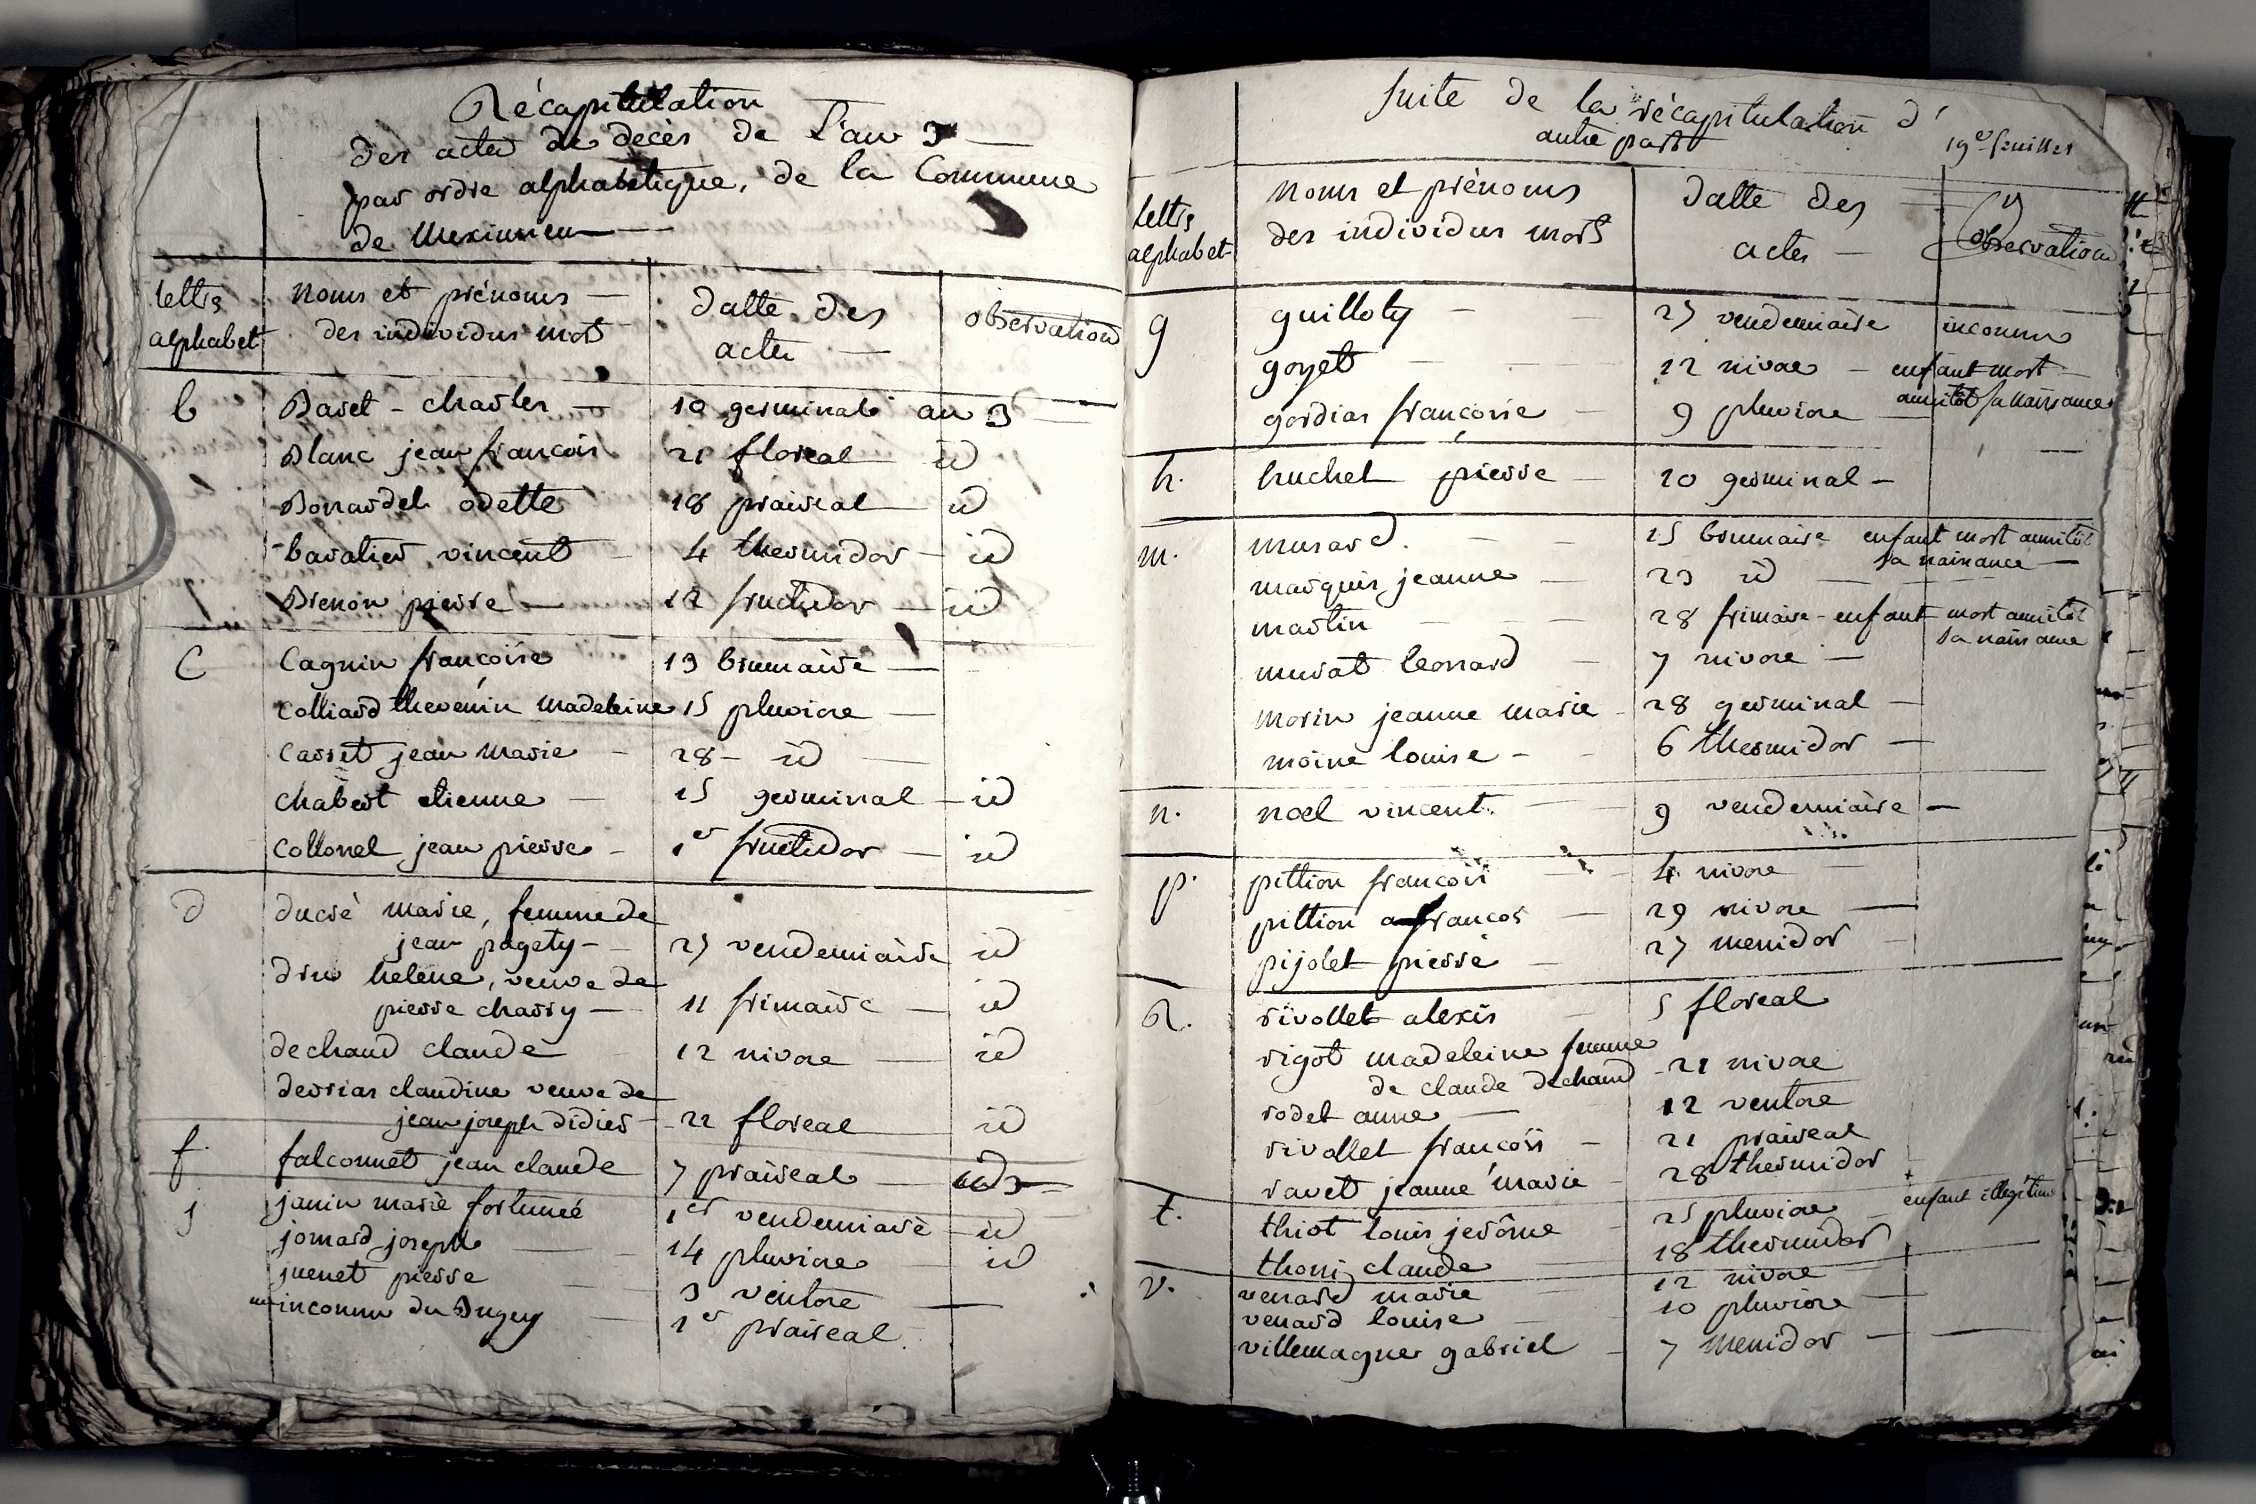 Récapitulation
des actes de decès de L'an 3
par ordre alphabetique, de la Commune
de Meximieux
lettrs alphabet
noms et prénoms des individus mort
datte des actes
observation
b Baret - charles 10 germinal an 3
Blanc jean françois 21 floreal id
Bonardel odette 18 praireal id
bavalier vincent 4 thermidor id
Brenon pierre 12 fructidor id
C Cagnin françoise 13 brumaire
Colliard thevenin madeleine 15 pluviose
Casset jean marie 28 - id
Chabert etienne 15 germinal id
Collonel jean pierre 1er fructidor id
d ducré marie, femme de
jean pagety - 27 vendemiaire id
dru helene, veuve de
pierre charry 11 frimaire id
dechaud claude 12 nivose id
derrias claudine veuve de
jean joseph didier 22 floreal id
f. falconnet jean claude 7 praireal
j janin marie fortuneé 1er vendemiaire id
jomard joseph 14 pluviose id
juenet pierre 3 ventose
un inconnu du Bugey 1er praireal
suite de la récapitulation d'
autre part
19e feuillet
lettrs alphabet
noms et prénoms des individus mort
datte des actes
observation
g guilloty 27 vendemiaire inconnu
goyet 12 nivose enfant mort
aussitôt sa naissance
gordias françoise 9 pluviose
h. huchet pierre 20 germinal
m. murard. 15 brumaire enfant mort aussitôt
sa naissance
marquis jeanne 23 id
martin 28 frimaire - enfant mort aussitôt
sa naissance
murat leonard 7 nivose
morin jeanne marie 28 germinal
moine louise 6 thermidor
n. noel vincent. 9 vendemiaire
p. pittion françois 4 nivose
pittion francos 29 nivose
pijolet pierre 27 messidor
R. rivollet alexis 5 floreal
rigot madeleine femme
de claude dechaud 21 nivose
rodet anne 12 ventose
rivollet françois 21 praireal
ravet jeanne marie 28 thermidor
t. thiot louis jerôme 25 pluviose enfant illegitime
thoni claude 18 thermidor
v. venard marie 12 nivose
venard louise 10 pluviose
villemagne gabriel 7 messidor